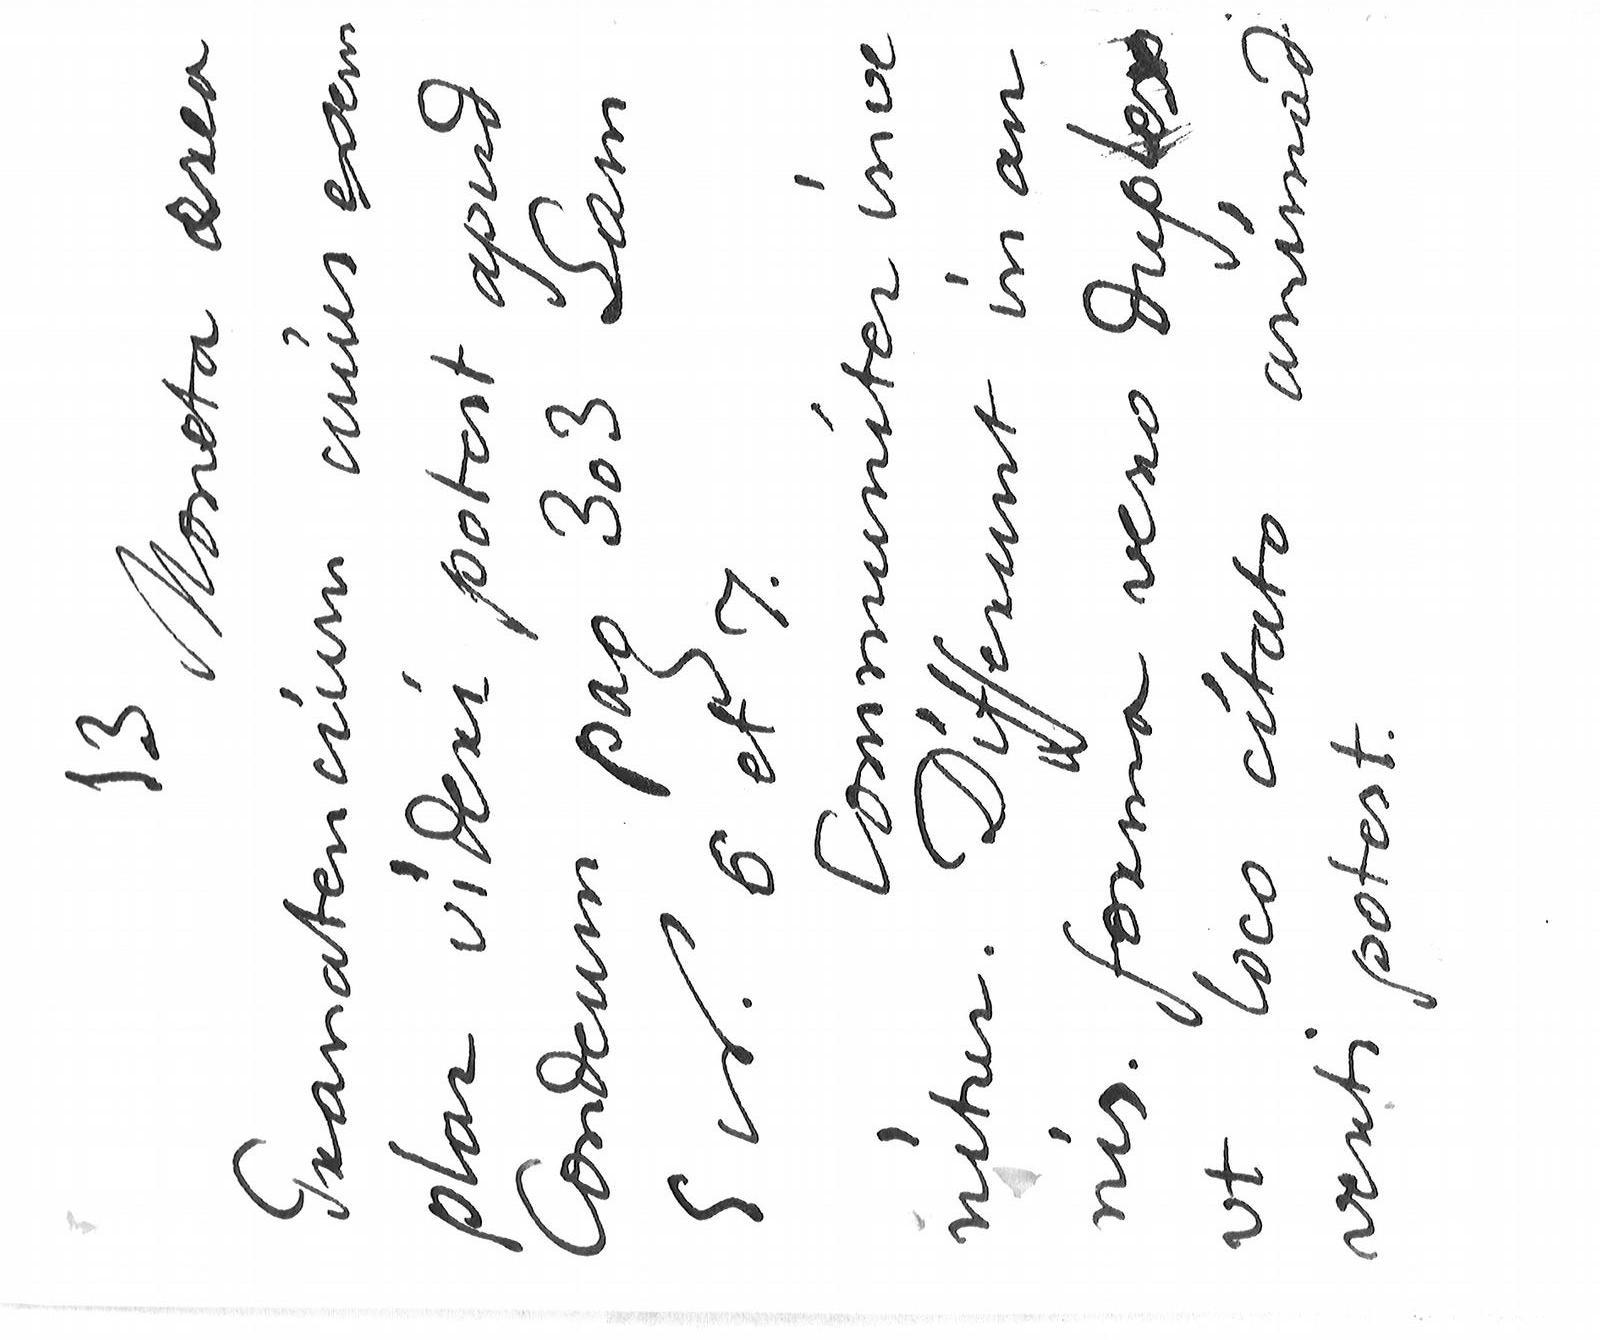 13 Moneta aerea
Granatencium cuius exem
plar videri potest apud
Condeum pag 303 Lam
5 N. 6 et 7.
Communiter inve
nitur. Differunt in an
nis. forma vero duplex
vt loco citato animad
verti potest.